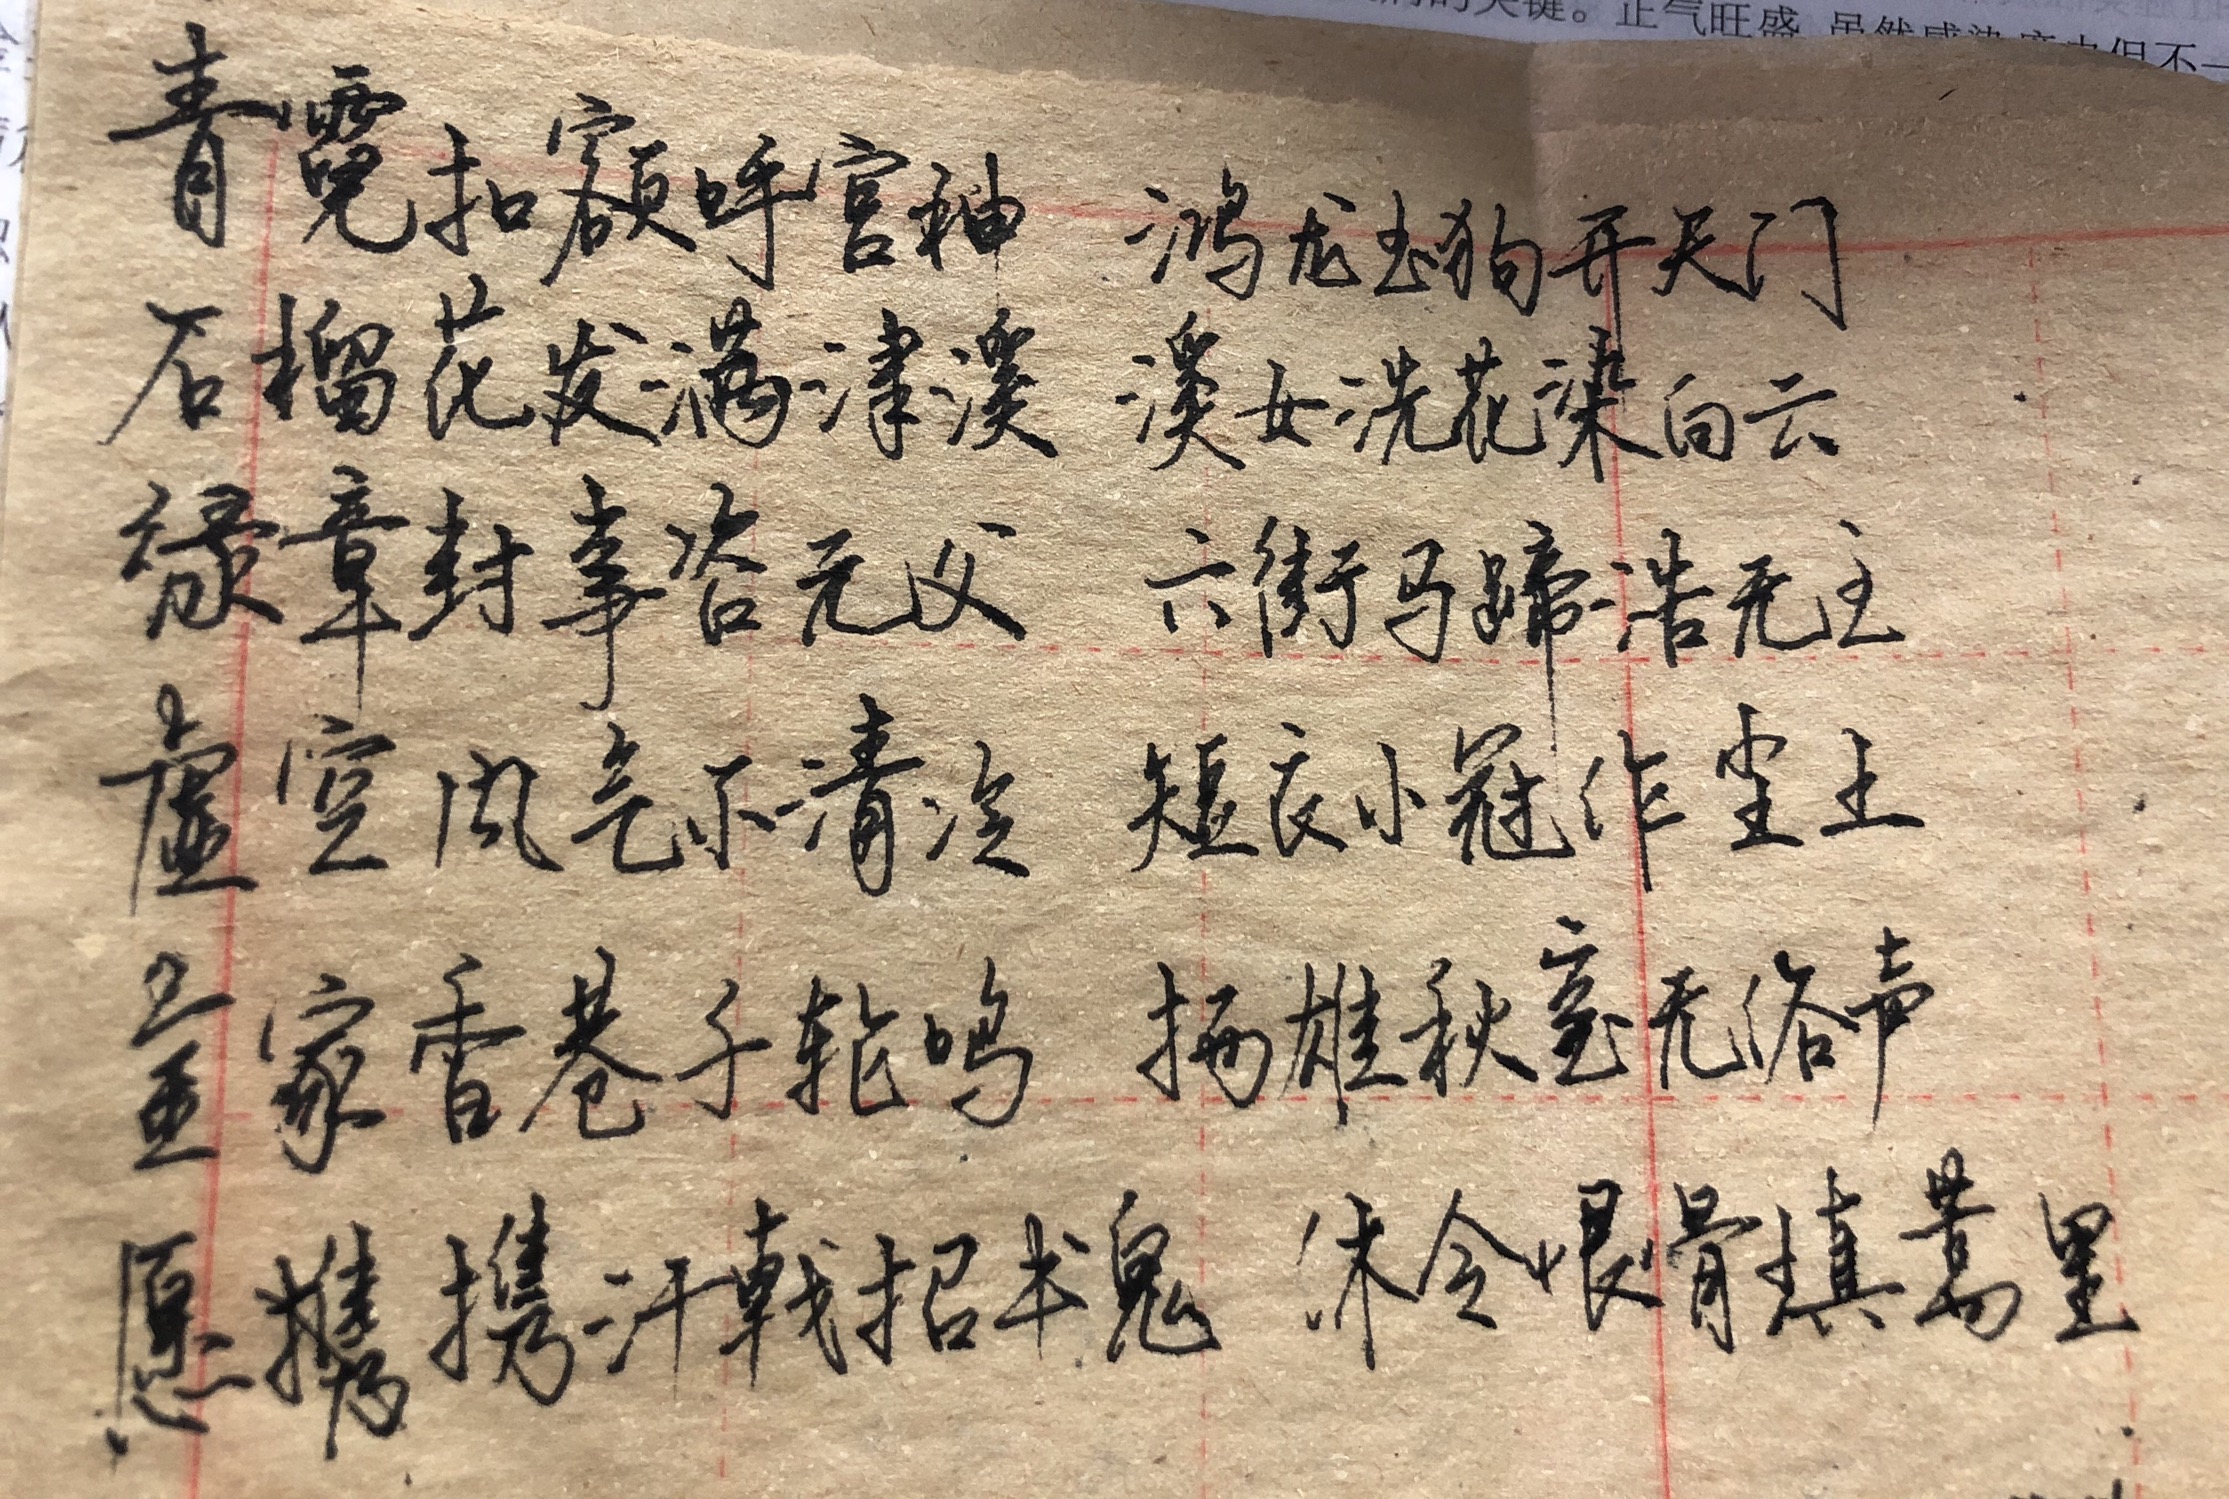 的关键。正气旺盛
青霓扣额呼宫神 鸿龙玉狗开天门
石榴花发满津溪 溪女洗花染白云
绿章封事咨元父 六街马蹄浩无主
虚空风气不清冷 短衣小冠作尘土
金家香巷千轮鸣 扬雄秋室无俗声
愿携携汗戟招书鬼 休令恨骨填蒿里